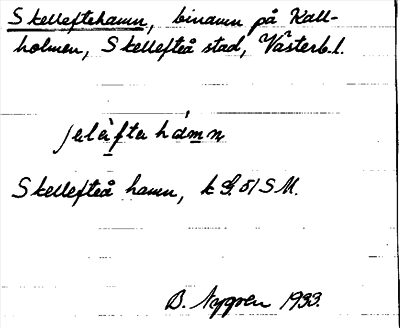 Skelleftehamn, binamn på Kall-
holmen, Skellefteå stad, Västerb.l.
ʃelèftehámn
Skellefteå hamn, k
B. Nygren 1933.